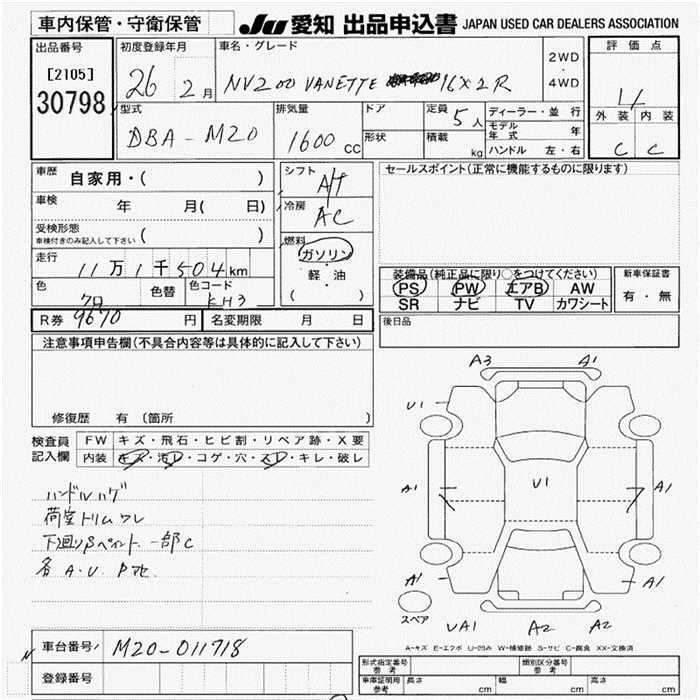 車内保管・守衛保管
JU 愛知 出品申込書 JAPAN USED CAR DEALERS ASSOCIATION
出品番号
[2105]
30798
初度登録年月
26 2月
車名・グレード
NV200 VANETTE 16X2R
2WD
・
4WD
評価点
4
外装 内装
C C
型式
DBA-M20
排気量
1600cc
ドア
形状
定員 5人
積載 kg
ディーラー・並行
モデル年式 年
ハンドル 左・右
車歴 自家用・( )
車検 年 月( 日)
受検形態
車検付きのみ記入して下さい ( )
走行 11万1千504km
色 色替 色コード
KH3
シフト
AT
冷房
AC
燃料
ガソリン
・
軽油
( )
セールスポイント(正常に機能するものに限ります)
装備品(純正品に限り○をつけてください)
PS PW エアB AW
SR ナビ TV カワシート
新車保証書
有・無
R券 9670円 名変期限 月 日
後日品
注意事項申告欄(不具合内容等は具体的に記入して下さい)
修復歴 有 (箇所
検査員
記入欄
FW キズ・飛石・ヒビ割・リペア跡・X要
内装 キズ・汚レ・コゲ・穴・スレ・キレ・破レ
ハンドルハゲ
荷室トリムワレ
下廻りSペイント 一部C
各A.U.
A3 A1
U1
A1 U1 A1
A1 A1
UA1 A2 A2
スペア
A-キズ E-エクボ U-凹み W-補修跡 S-サビ C-腐食 XX-交換済
車台番号 M20-011718
登録番号
形式指定番号
参考
類別区分番号
参考
車庫証明用
参考
長さ cm 幅 cm 高さ cm